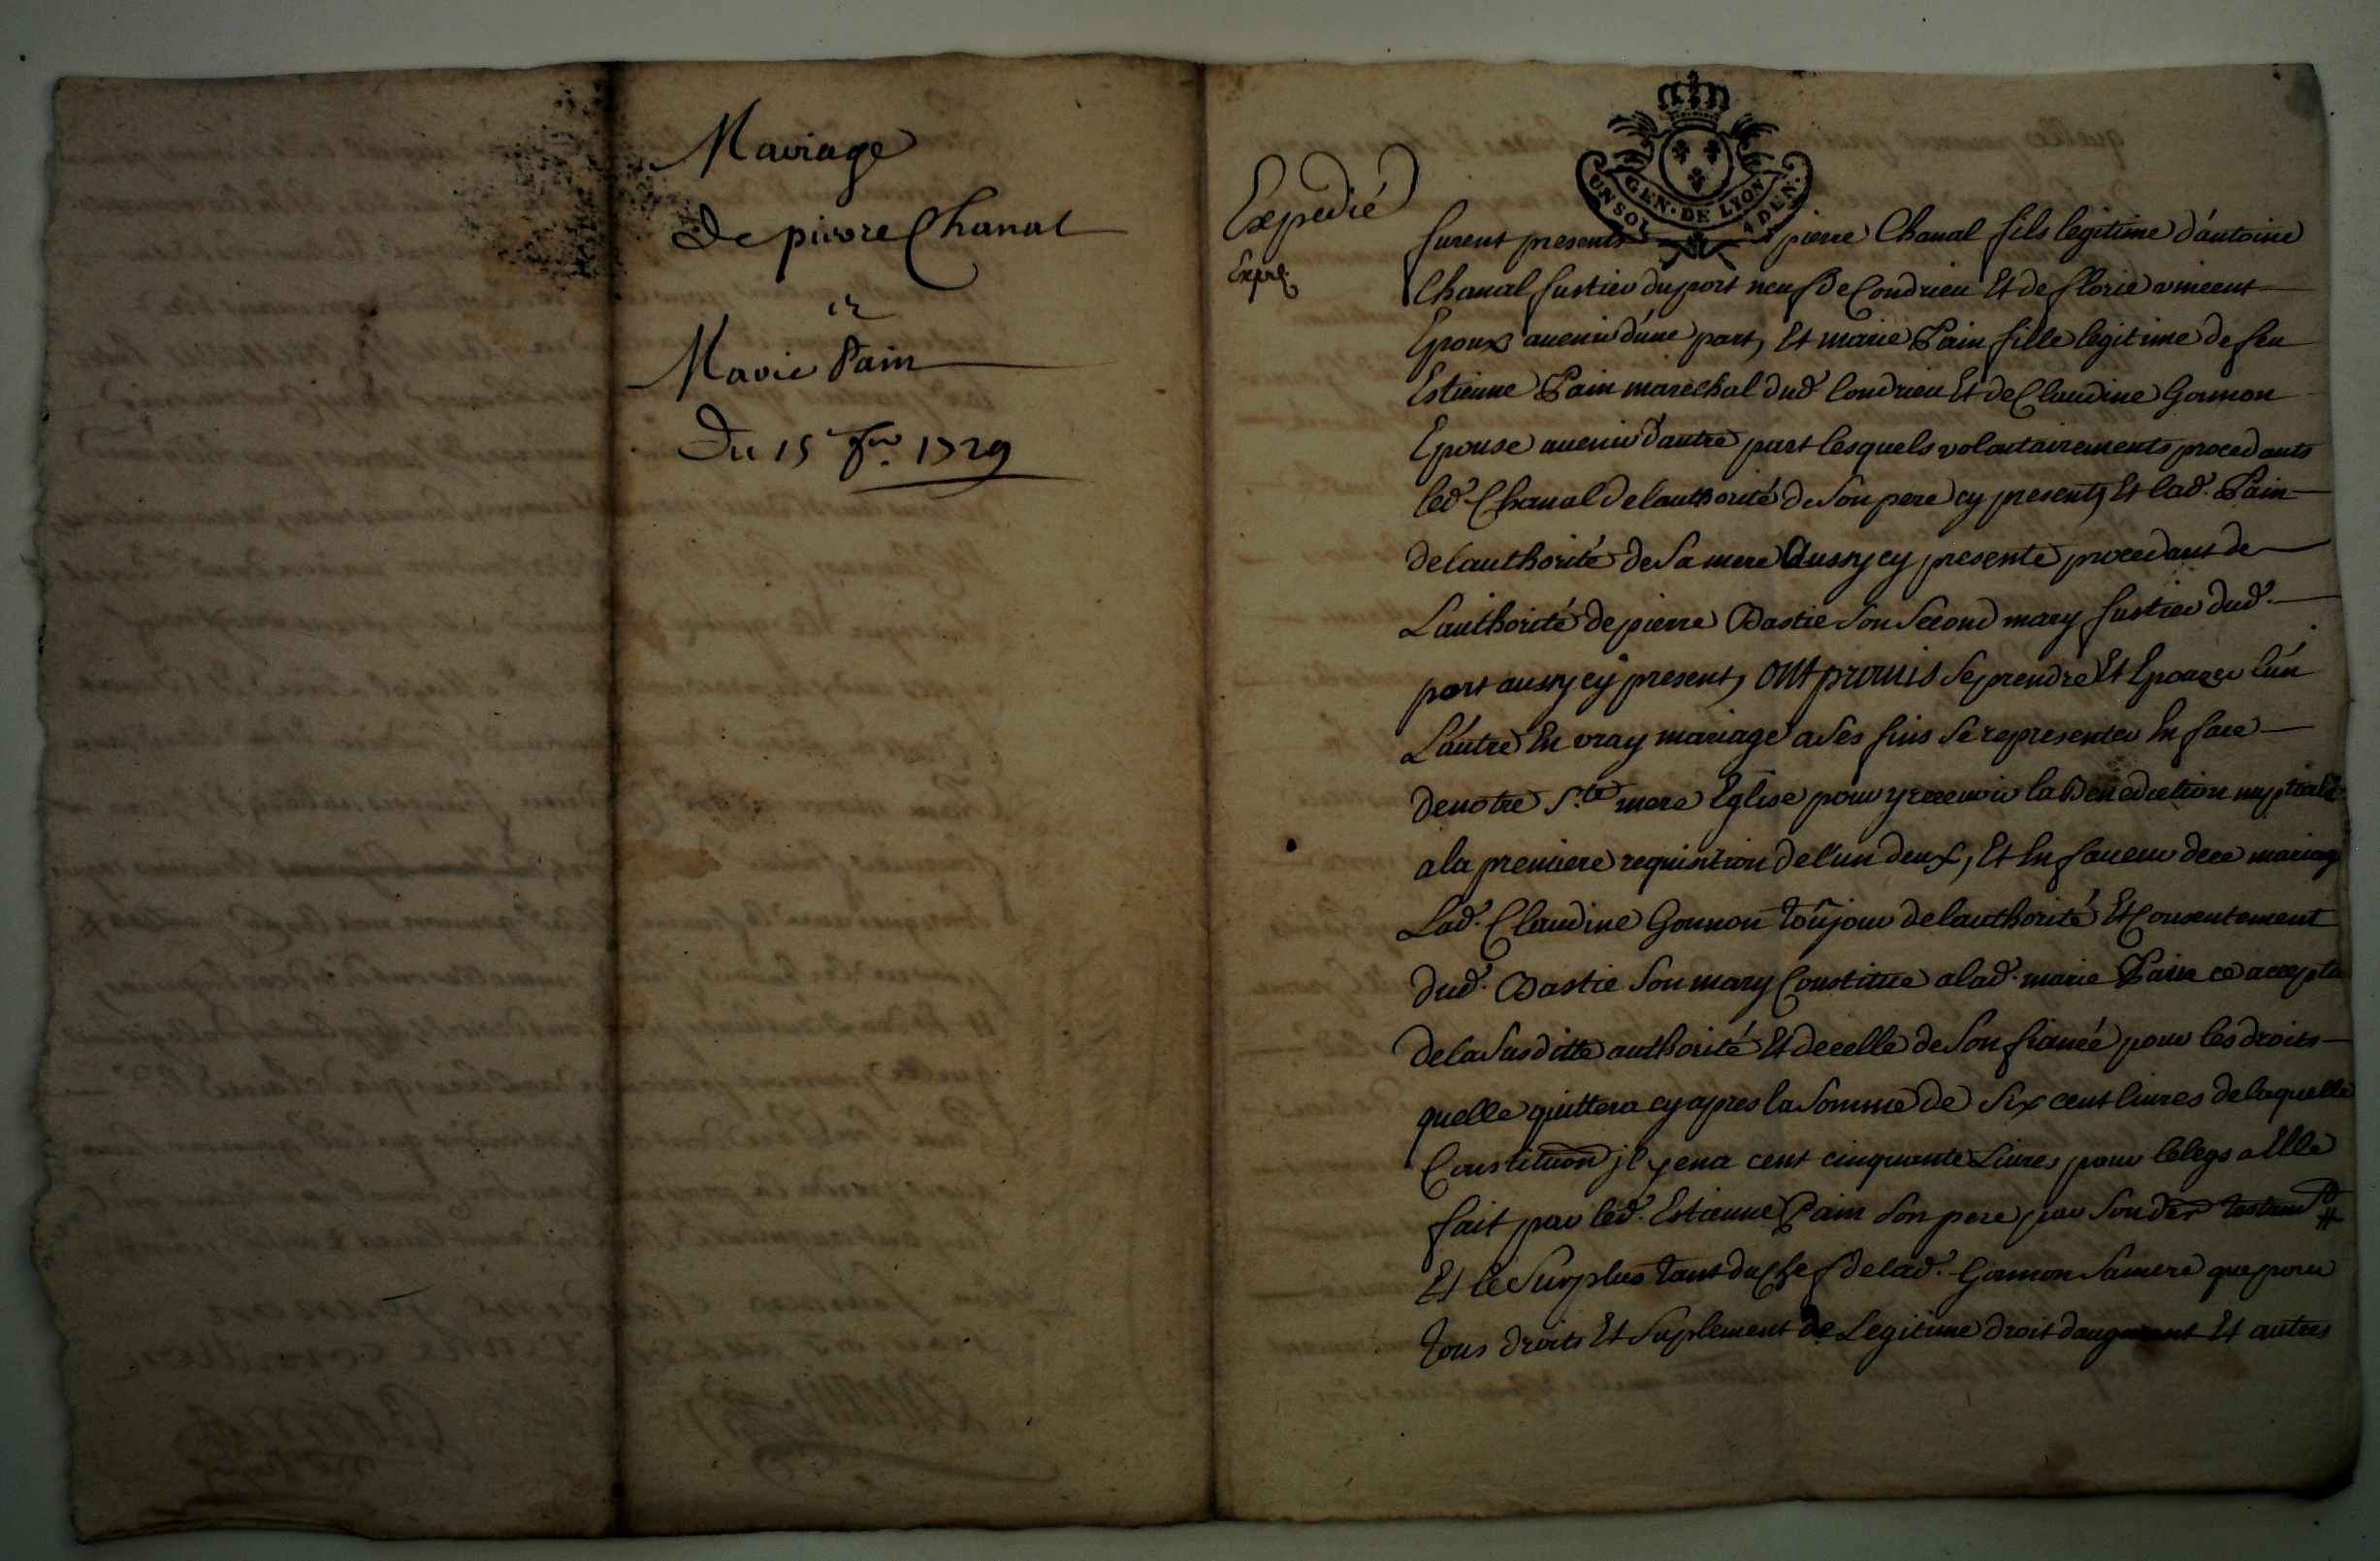 Mariage
De pierre Chanal
et
Marie Pain
Du 15 fer. 1729
Expedié
GEN. DE LYON
UN SOL 4 DEN.
furent presents pierre Chanal fils legitime d'antoine
Chanal fustier du port neuf de Condrieu Et de florie vincent
Epoux avenir d'une part, Et marie Pain fille legitime de feu
Estienne Pain marechal dud. Condrieu Et de Claudine Gonnon
Epouse avenir d'autre part lesquels volontairements procedants
led. Chanal de lauthorité de Son pere cy present, Et lad. Pain
de lauthorité de Sa mere Aussy cy presente procedant de
Lauthorité de pierre Bastie Son Second mary fustier dud.
port aussy cy present, ont promis Se prendre Et Epouzer l'un
L'autre En vray mariage a Ses fins Se representer En face
de notre Ste. mere Eglise pour y recevoir la Benediction nuptiale
a la premiere requisition de l'un deux, Et En faveur de ce mariage
Lad. Claudine Gonnon toûjour de lauthorité Et Consentement
dud. Bastie Son mary Constitue a lad. marie Pain ce accepta
de la Susditte authorité Et de celle de Son fiancé pour les droits
quelle quittera cy apres la Somme de Six cent livres de laquelle
Constitution jl y en a cent cinquante Livres pour le legs a Elle
fait par led. Estienne Pain Son pere par Son der testamt
Et le Surplus tant du chef de lad. Gonnon Sa mere que pour
tous droits Et Suplement de Legitime droit d'augment Et autres